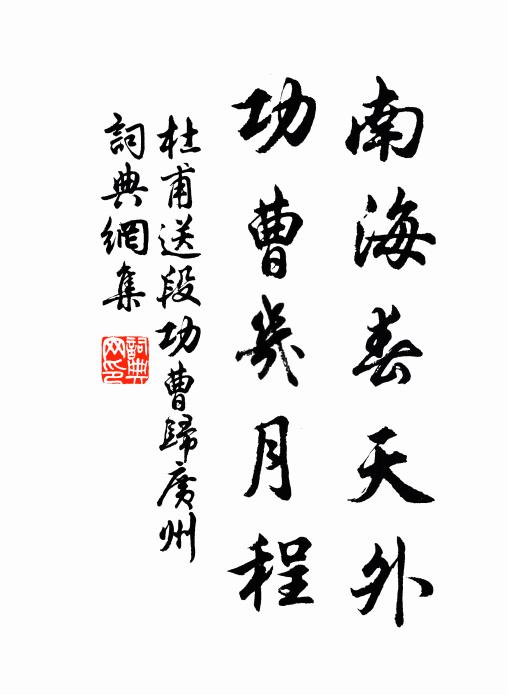 南海春天外
功曹幾月程
杜甫送段功曹歸廣州
詞典網集
詞典
网印